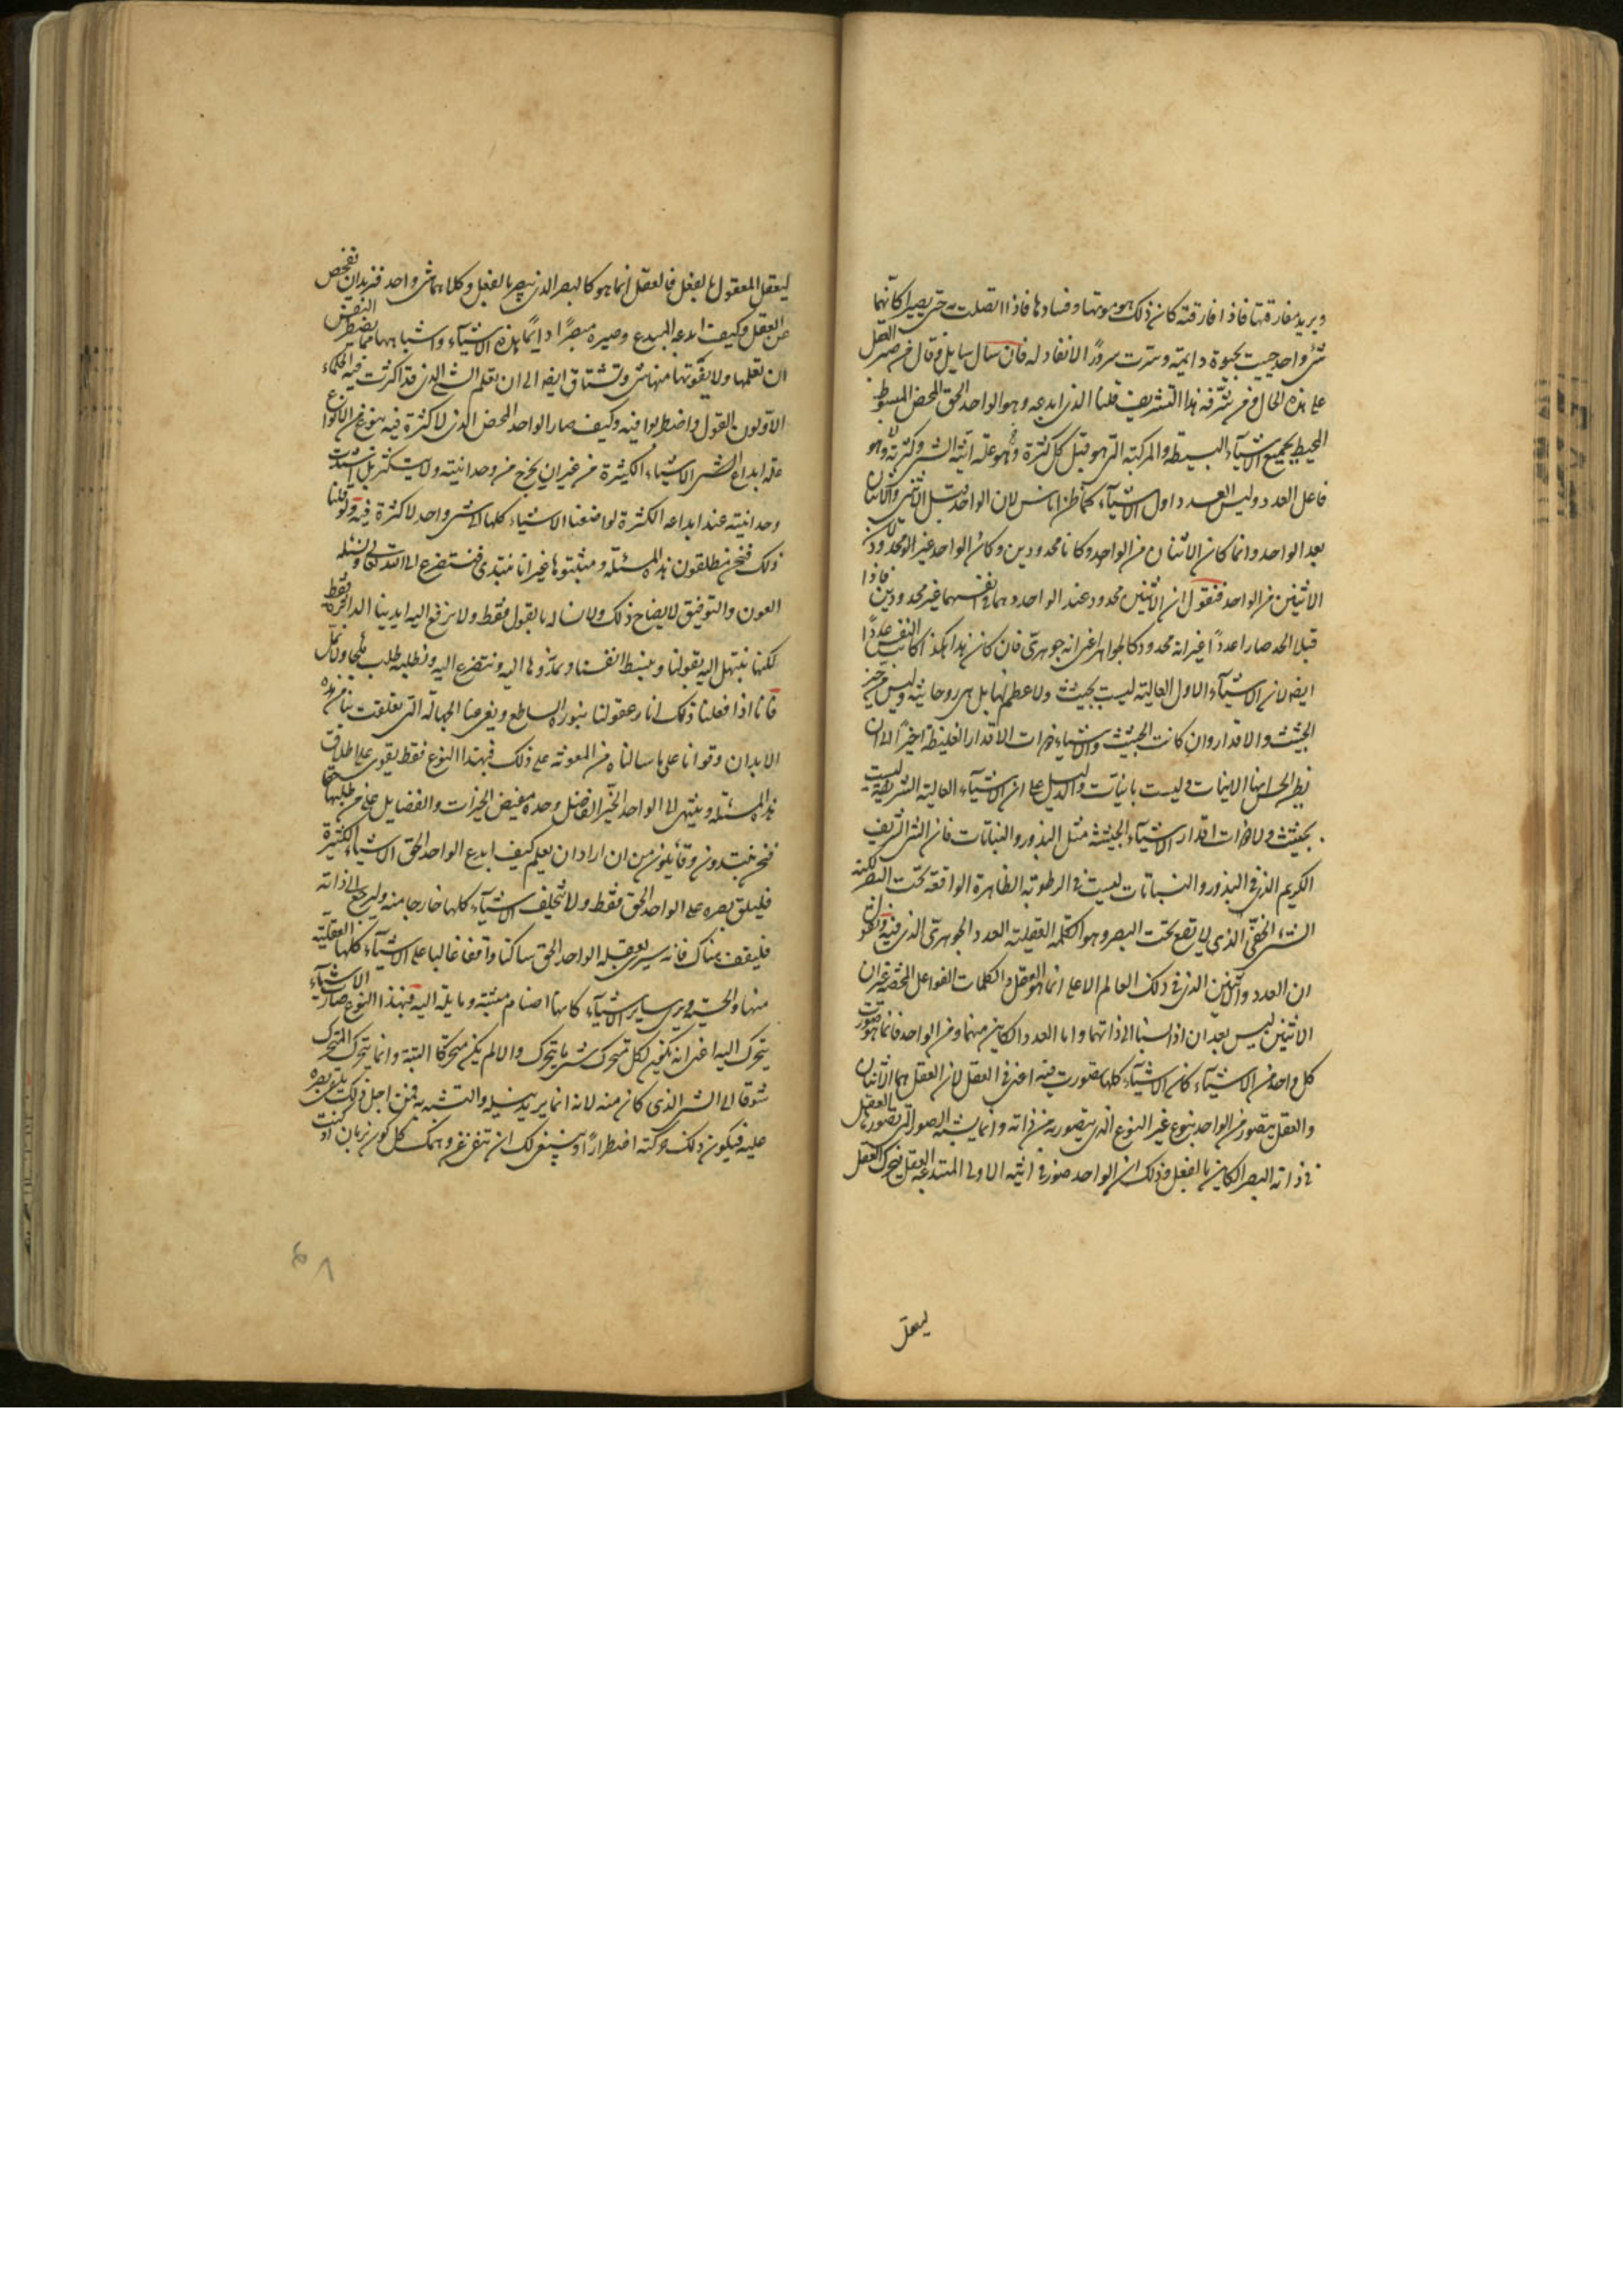 ويريد مفارقتها فاذا فارقته كان ذلك هو موتها وفسادها فاذا اتصلت به حتى يصيرا كانهما
شئ واحد حييت بحيوة دايمة وسرت سرورًا لا نفاد له فان سال سايل وقال من صير العقل
على هذه الحال ومن شرفه هذا التشريف قلنا الذى ابدعه وهو الواحد الحق المحض المبسوط
المحيط بجميع الاشياء البسيطة والمركبة التى هو قبل كل كثرة وهو علة انية الشئ وكثرته وهو
فاعل العدد وليس العدد اول الاشياء كما ظن اناس لان الواحد قبل الاثنين والاثنان
بعد الواحد وانما كان الاثنان من الواحد وكانا محدودين وكان الواحد غير محدود لان
الاثنين من الواحد فنقول ان الاثنين محدود عند الواحد وهما فى انفسهما غير محدودين فاذا
قبلا الحد صارا عددًا غير انه محدود كالجواهر اعنى انه جوهرى فان كان هذا هكذا كانت النفس عددًا
ايضا لان الاشياء الاول العالية ليست بجثث ولا عظم لها بل هى روحانية وليس من حيز
الجثث والاقدار وان كانت الجثث والاشياء ذوات الاقدار الغليظة اخيرًا الى ان
يظن الحس انها الانيات وليست بانيات والدليل على ان الاشياء العالية الشريفة ليست
بجثث ولا ذوات اقدار الاشياء الجثية مثل البذور والنباتات فان الشئ الشريف
الكريم الذى فى البذور والنباتات ليست فى الرطوبة الظاهرة الواقعة تحت البصر لكنه
الشئ الخفى الذى لا يقع تحت البصر وهو الكلمة العقلية العدد الجوهرى الذى فيه ونقول
ان العدد والاثنين الذى فى ذلك العالم الاعلى انما هو العقل والكلمات الفواعل المحضة غير ان
الاثنين ليس بعد ان اذا نسبا الى ذاتهما واما العدد الكاين منهما ومن الواحد فانما هو صورت
كل واحد من الاشياء كان الاشياء كلها تصورت فيه اعنى فى العقل لان العقل هما الاثنان
والعقل يتصور من الواحد بنوع غير النوع الذى يتصور به من ذاته وانما يشبه الصور التى تصورها العقل
فى ذاته البصر الكاين بالفعل وذلك ان الواحد صور فى انيته الاولى المبتدعة العقل فتحرك العقل
ليعقل
ليعقل المعقول بالفعل فالعقل انما هو كالبصر الذى يبصر بالفعل وكلاهما شئ واحد فنريد ان نفحص
عن العقل وكيف ابدعه المبدع وصيره مبصرًا دايمًا هذه الاشياء واشباهها مما يضطر النفس
ان تعلمها ولا يفوتها منها شئ وتشتاق ايضا الى ان تعلم الشئ الذى قد اكثرت فيه الحكماء
الاولون القول واضطربوا فيه وكيف صار الواحد المحض الذى لا كثرة فيه بنوع من الانواع
علة ابداع الاشياء الكثيرة من غير ان يخرج من وحدانيته ولا يتكثر بل اشتدت
وحدانيته عند ابداعه الكثرة لو اضفنا الاشياء كلها الى شئ واحد لا كثرة فيه وقلنا
ذلك فنحن مطلقون هذه المسئلة ومثبتوها غير انا نبتدى فنتضرع الى الله تعالى ونسئله
العون والتوفيق لايضاح ذلك ولا نساله بالقول فقط ولا نرفع اليه ايدينا الداثرة فقط
لكنا نبتهل اليه بعقولنا ونبسط انفسنا ونمدها اليه ونتضرع اليه ونطلبه طلب ملح ولا نمل
فانا اذا فعلنا ذلك انار عقولنا بنوره الساطع ونفى عنا الجهالة التى تعلقت بنا من هذه
الابدان وقوانا على ما سالناه من المعونة على ذلك فبهذا النوع فقط يقوى على اطلاق
هذه المسئلة وينتهى الى الواحد الخير الفاضل وحده مفيض الخيرات والفضايل على من طلبها حقا
فنحن مبتدون وقايلون من اراد ان يعلم كيف ابدع الواحد الحق الاشياء الكثيرة
فليلق بصره على الواحد الحق فقط ولا يخلف الاشياء كلها خارجا منه وليرجع الى ذاته
فليقف هناك فانه سيرى بعقله الواحد الحق ساكنا واقفا عاليا على الاشياء كلها العقلية
منها والحسية ويرى ساير الاشياء كانها اصنام منبثة ومايلة اليه فبهذا النوع صارت الاشياء
يتحرك اليه اعنى انه يكون لكل متحرك شئ ما يتحرك والا لم يكن متحركا البتة وانما يتحرك المتحرك
شوقا الى الشئ الذى كان منه لانه انما يريد نيله والتشبه به فمن اجل ذلك يلقى بصره
عليه فيكون ذلك حركته اضطرارًا وينبغى لك ان تنفى عن وهمك كل كون بزمان اذ كنت